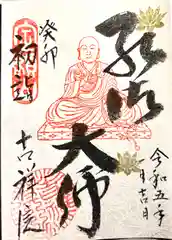 令和五年
一月吉日
弘法
大師
癸卯
初詣
吉祥院